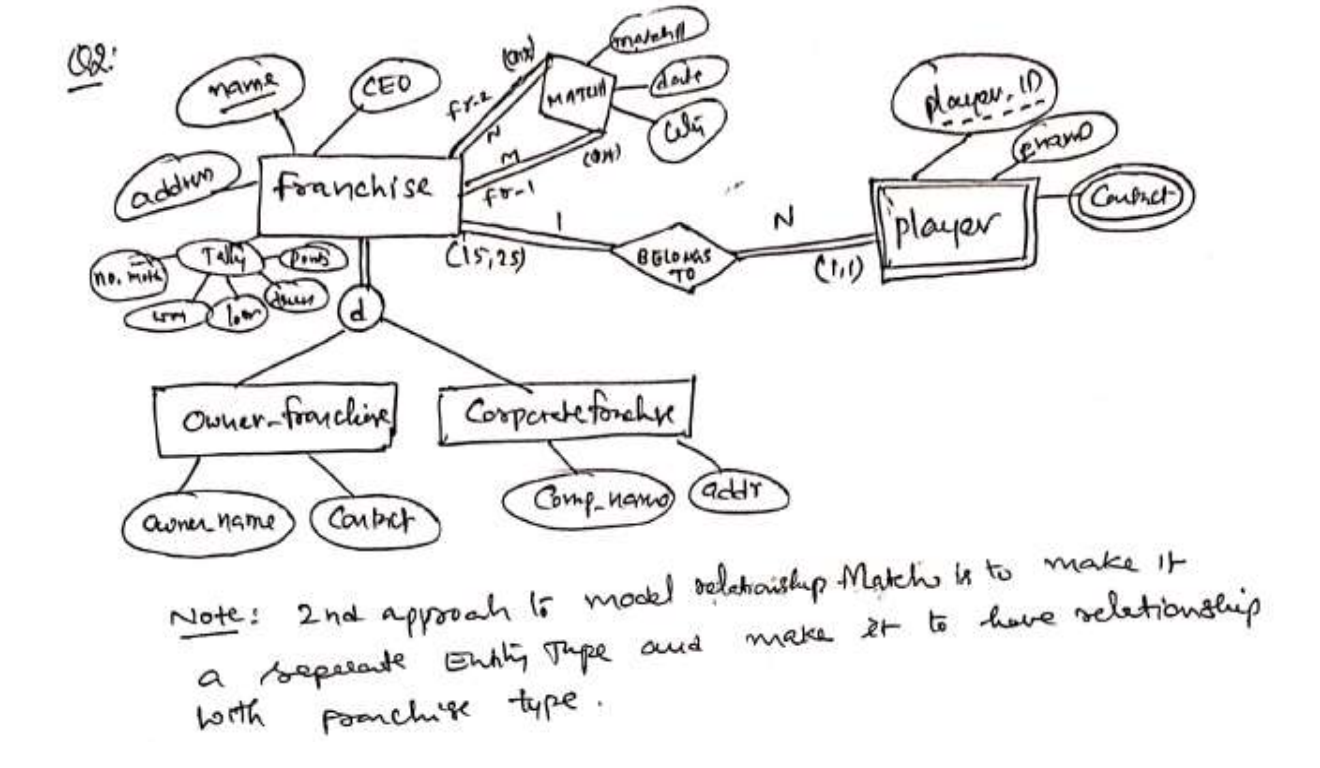 Q2:
name
CEO
address
franchise
fr-2
N
M
fr-1
MATCH
match#
date
City
player_ID
pname
Contact
player
1
(15,25)
BELONGS
TO
N
(1,1)
Tally
no. mate
d
Owner_franchise
Corporate franchise
owner_name
Contact
Comp_name
addr
Note: 2nd approah to model relationship Match is to make it
a seperate Entity Type and make it to have relationship
with franchise type.